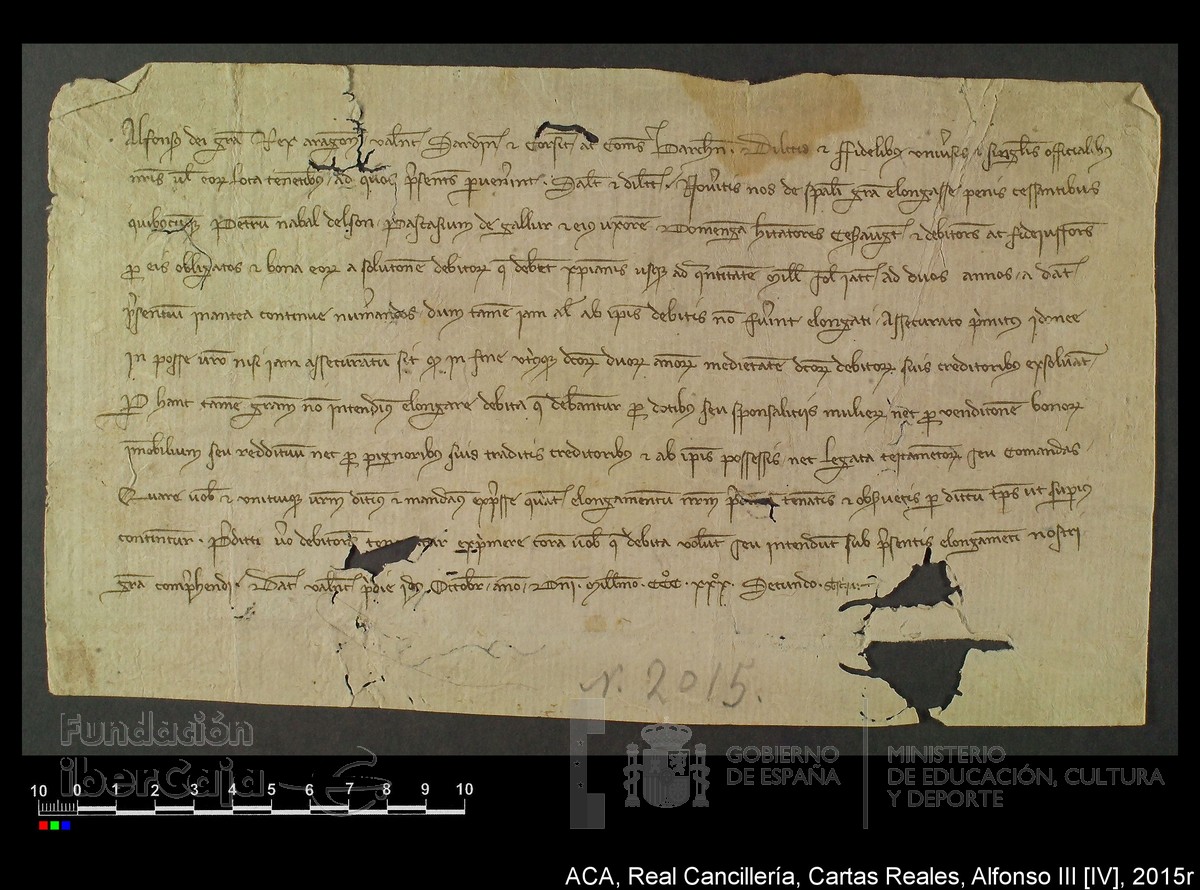 Alfonsus dei gra Rex aragon valent Sardin et Corsic ac Comes Barchn. Dilectis et fidelibus universis et singlis officialibus
nris vel eorum loca tenentibus ad quos presents pervenerint. Salt et dilect. Noveritis nos de spali gra elongasse penis cessantibus
quibuscumque Petrum nabal delson Pascasium de gallur et eius uxorem Domenga hitatores Cesaraugt et debitores ac fideiussores
per eis obligatos et bona eorum a solutone debitorum que debent xpianis usque ad quntitatem Mill sol iacc ad duos annos a dat
presentium inantea continue numerandos dum tamen iam al ab ipsis debitis non fuerint elongati Assecurato primitus idonee
in posse vro nisi iam assecuratum sit quod in fine utriusque dcorum duorum annorum medietatem dcorum debitorum suis creditoribus exsolvat
Per hanc tamen gram non intendimus elongare debita que debeantur pro dotibus seu sponsaliciis mulierum nec pro venditone bonorum
imobilium seu reddituum nec pro pignoribus suis traditis creditoribus et ab ipsis possessis nec legata testamentorum seu comandas
Quare vob et unicuique vrm dicimus et mandamus expresse quat elongamentum nrm teneatis et observetis per dictum temps ut superius
continetur. Predicti vero debitores exprimere coram vob que debita volunt seu intendunt sub presentis elongamenti nostri
gra comprehendi. Dat valent pridie idus Octobr anno Dni Millmo CCC xxx Secundo
N. 2015.
Fundación
iberCaja
GOBIERNO DE ESPAÑA
MINISTERIO DE EDUCACIÓN, CULTURA Y DEPORTE
10 0 1 2 3 4 5 6 7 8 9 10
ACA, Real Cancillería, Cartas Reales, Alfonso III [IV], 2015r